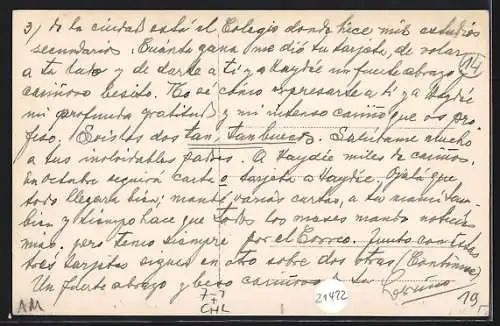 3) de la ciudad está el Colegio donde hice mis estudios
secundarios. Cuánta gana me dió tu tarjeta, de volar
a tu lado y de darte a ti y a Haydée un fuerte abrazo y
cariñoso besito. No sé cómo expresarte a ti y a Haydée
mi profunda gratitud y mi intenso cariño que os pro-
feso. Sois los dos tan, tan buenos. Salúdame mucho
a tus inolvidables padres. A Haydée miles de cariños.
En octubre seguirá carta o tarjeta a Haydée. Ojalá que
todo llegara bien; mandé varias cartas, a tu mamá tam-
bién y tiempo hace que todos los meses mando noticias
mías. pero tenía siempre por el Correo. Junto con estas
tres tarjetas siguen en otro sobre dos otras (Continúa)
Un fuerte abrazo y beso cariñoso de tu
14
AM
77
CHL
21422
19,-